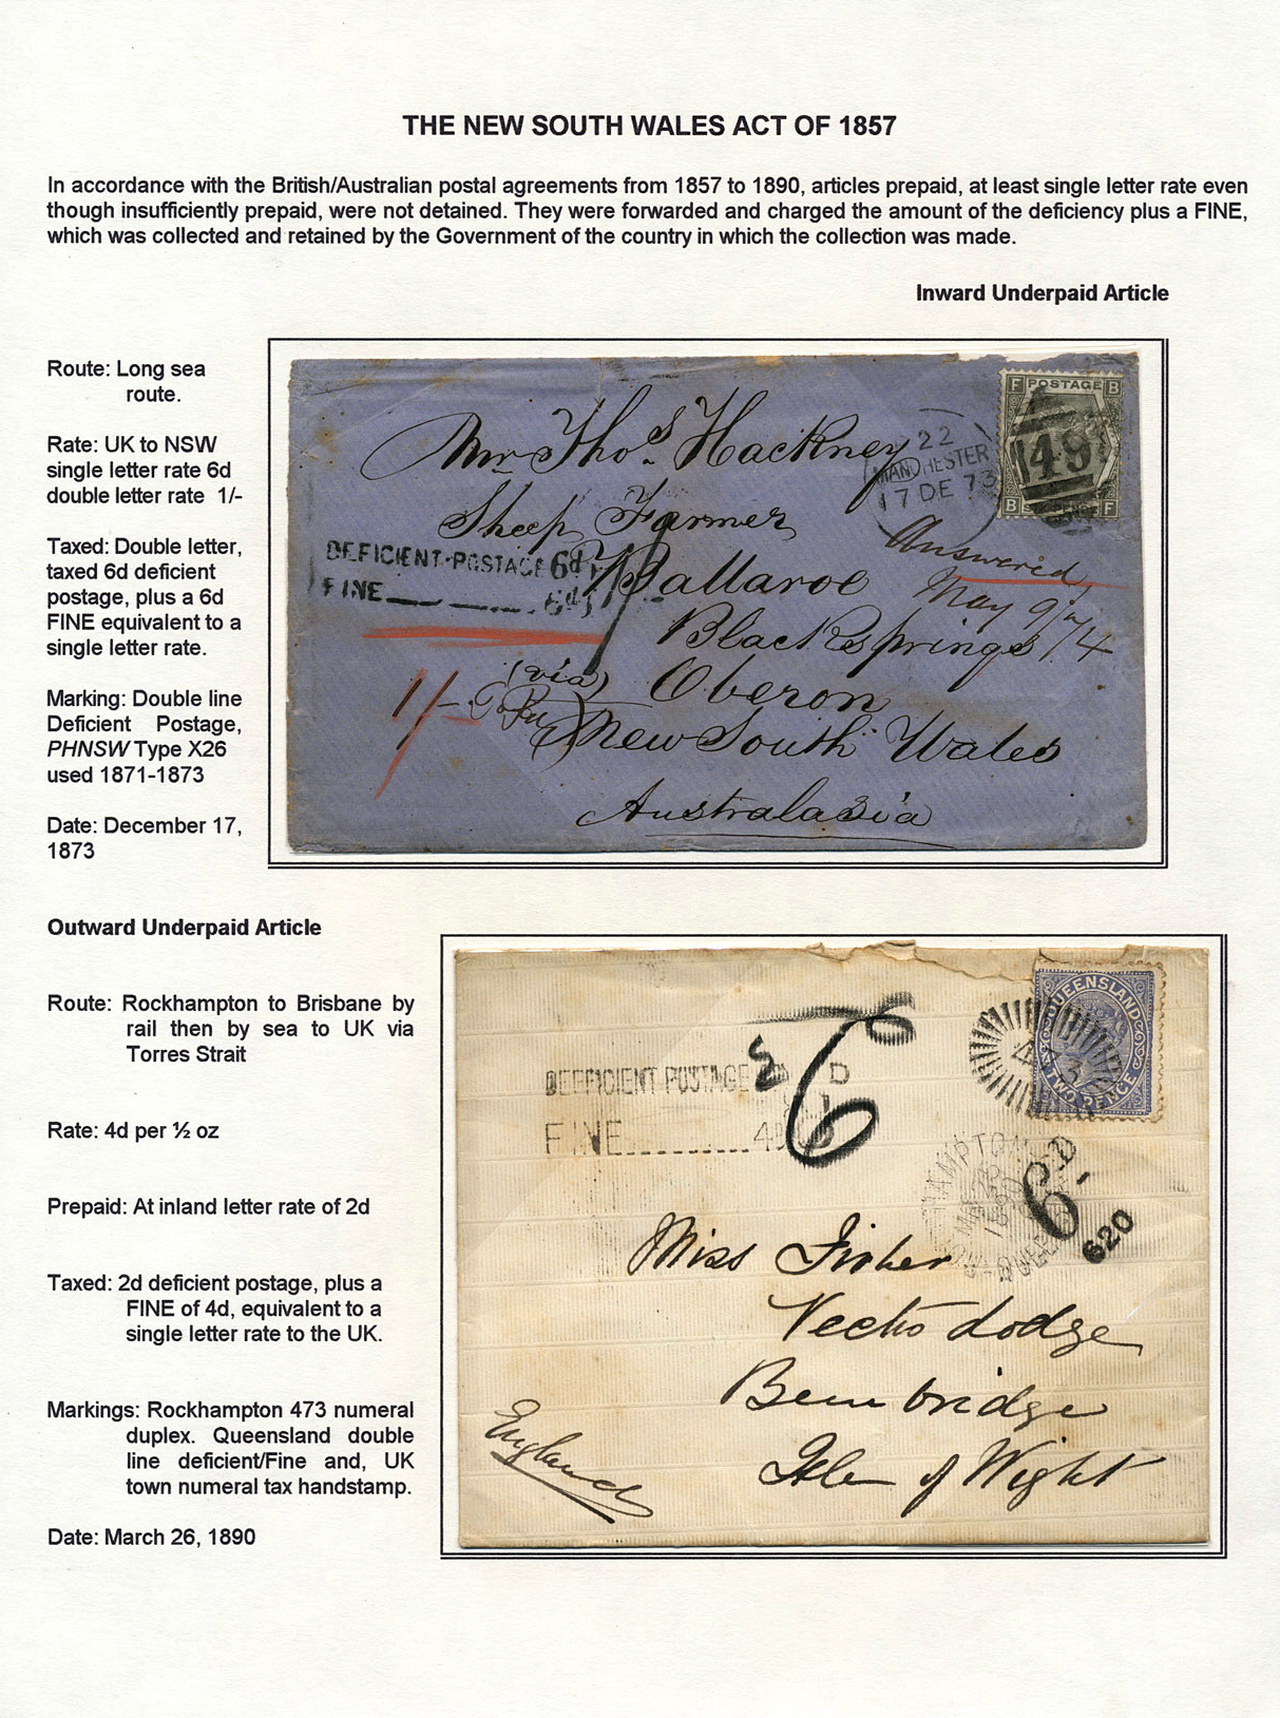 THE NEW SOUTH WALES ACT OF 1857
In accordance with the British/Australian postal agreements from 1857 to 1890, articles prepaid, at least single letter rate even
though insufficiently prepaid, were not detained. They were forwarded and charged the amount of the deficiency plus a FINE,
which was collected and retained by the Government of the country in which the collection was made.
Inward Underpaid Article
Route: Long sea
route.
Rate: UK to NSW
single letter rate 6d
double letter rate 1/-
Taxed: Double letter,
taxed 6d deficient
postage, plus a 6d
FINE equivalent to a
single letter rate.
Marking: Double line
Deficient Postage,
PHNSW Type X26
used 1871-1873
Date: December 17,
1873
F POSTAGE B
498
B F
22
MANCHESTER
17 DE 73
Mr Thos. Hackney
Sheep Farmer
DEFICIENT POSTAGE 6d
FINE 6d
Ballaroe
Answered
May 9th/74
Black Springs
(via) Oberon
1/-
New South Wales
Australasia
Outward Underpaid Article
Route: Rockhampton to Brisbane by
rail then by sea to UK via
Torres Strait
Rate: 4d per ½ oz
Prepaid: At inland letter rate of 2d
Taxed: 2d deficient postage, plus a
FINE of 4d, equivalent to a
single letter rate to the UK.
Markings: Rockhampton 473 numeral
duplex. Queensland double
line deficient/Fine and, UK
town numeral tax handstamp.
Date: March 26, 1890
QUEENSLAND
TWO PENCE
473
DEFICIENT POSTAGE 2 D
FINE 4D
6
6D
620
Miss Fisher
Lodge
Bembridge
Isle of Wight
England